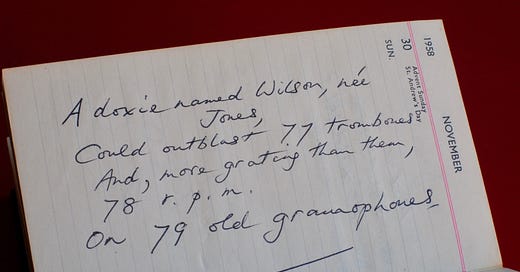 1958
NOVEMBER
30
SUN.
Advent Sunday
St. Andrew's Day
A doxie named Wilson, née
Jones,
Could outblast 77 trombones
And, more grating than them,
78 r.p.m.
On 79 old gramophones